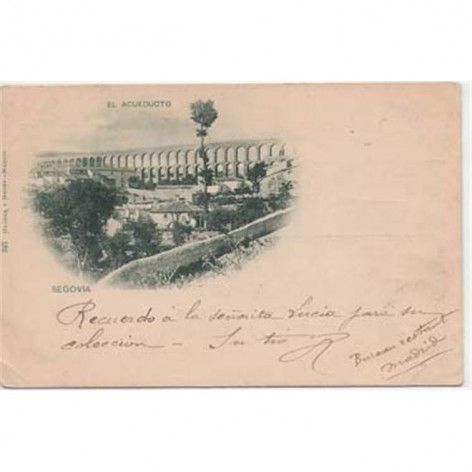 EL ACUEDUCTO
SEGOVIA
Recuerdo á la señorita Lucia para su
colección — Su tio
Madrid